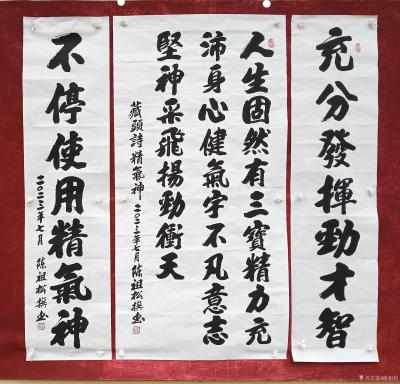 充分發揮勁才智
人生固然有三寶精力充
沛身心健氣宇不凡意志
堅神采飛揚勁衝天
藏頭詩精氣神 二〇二三年七月陈祖松撰书
不停使用精氣神
二〇二三年七月 陈祖松撰书